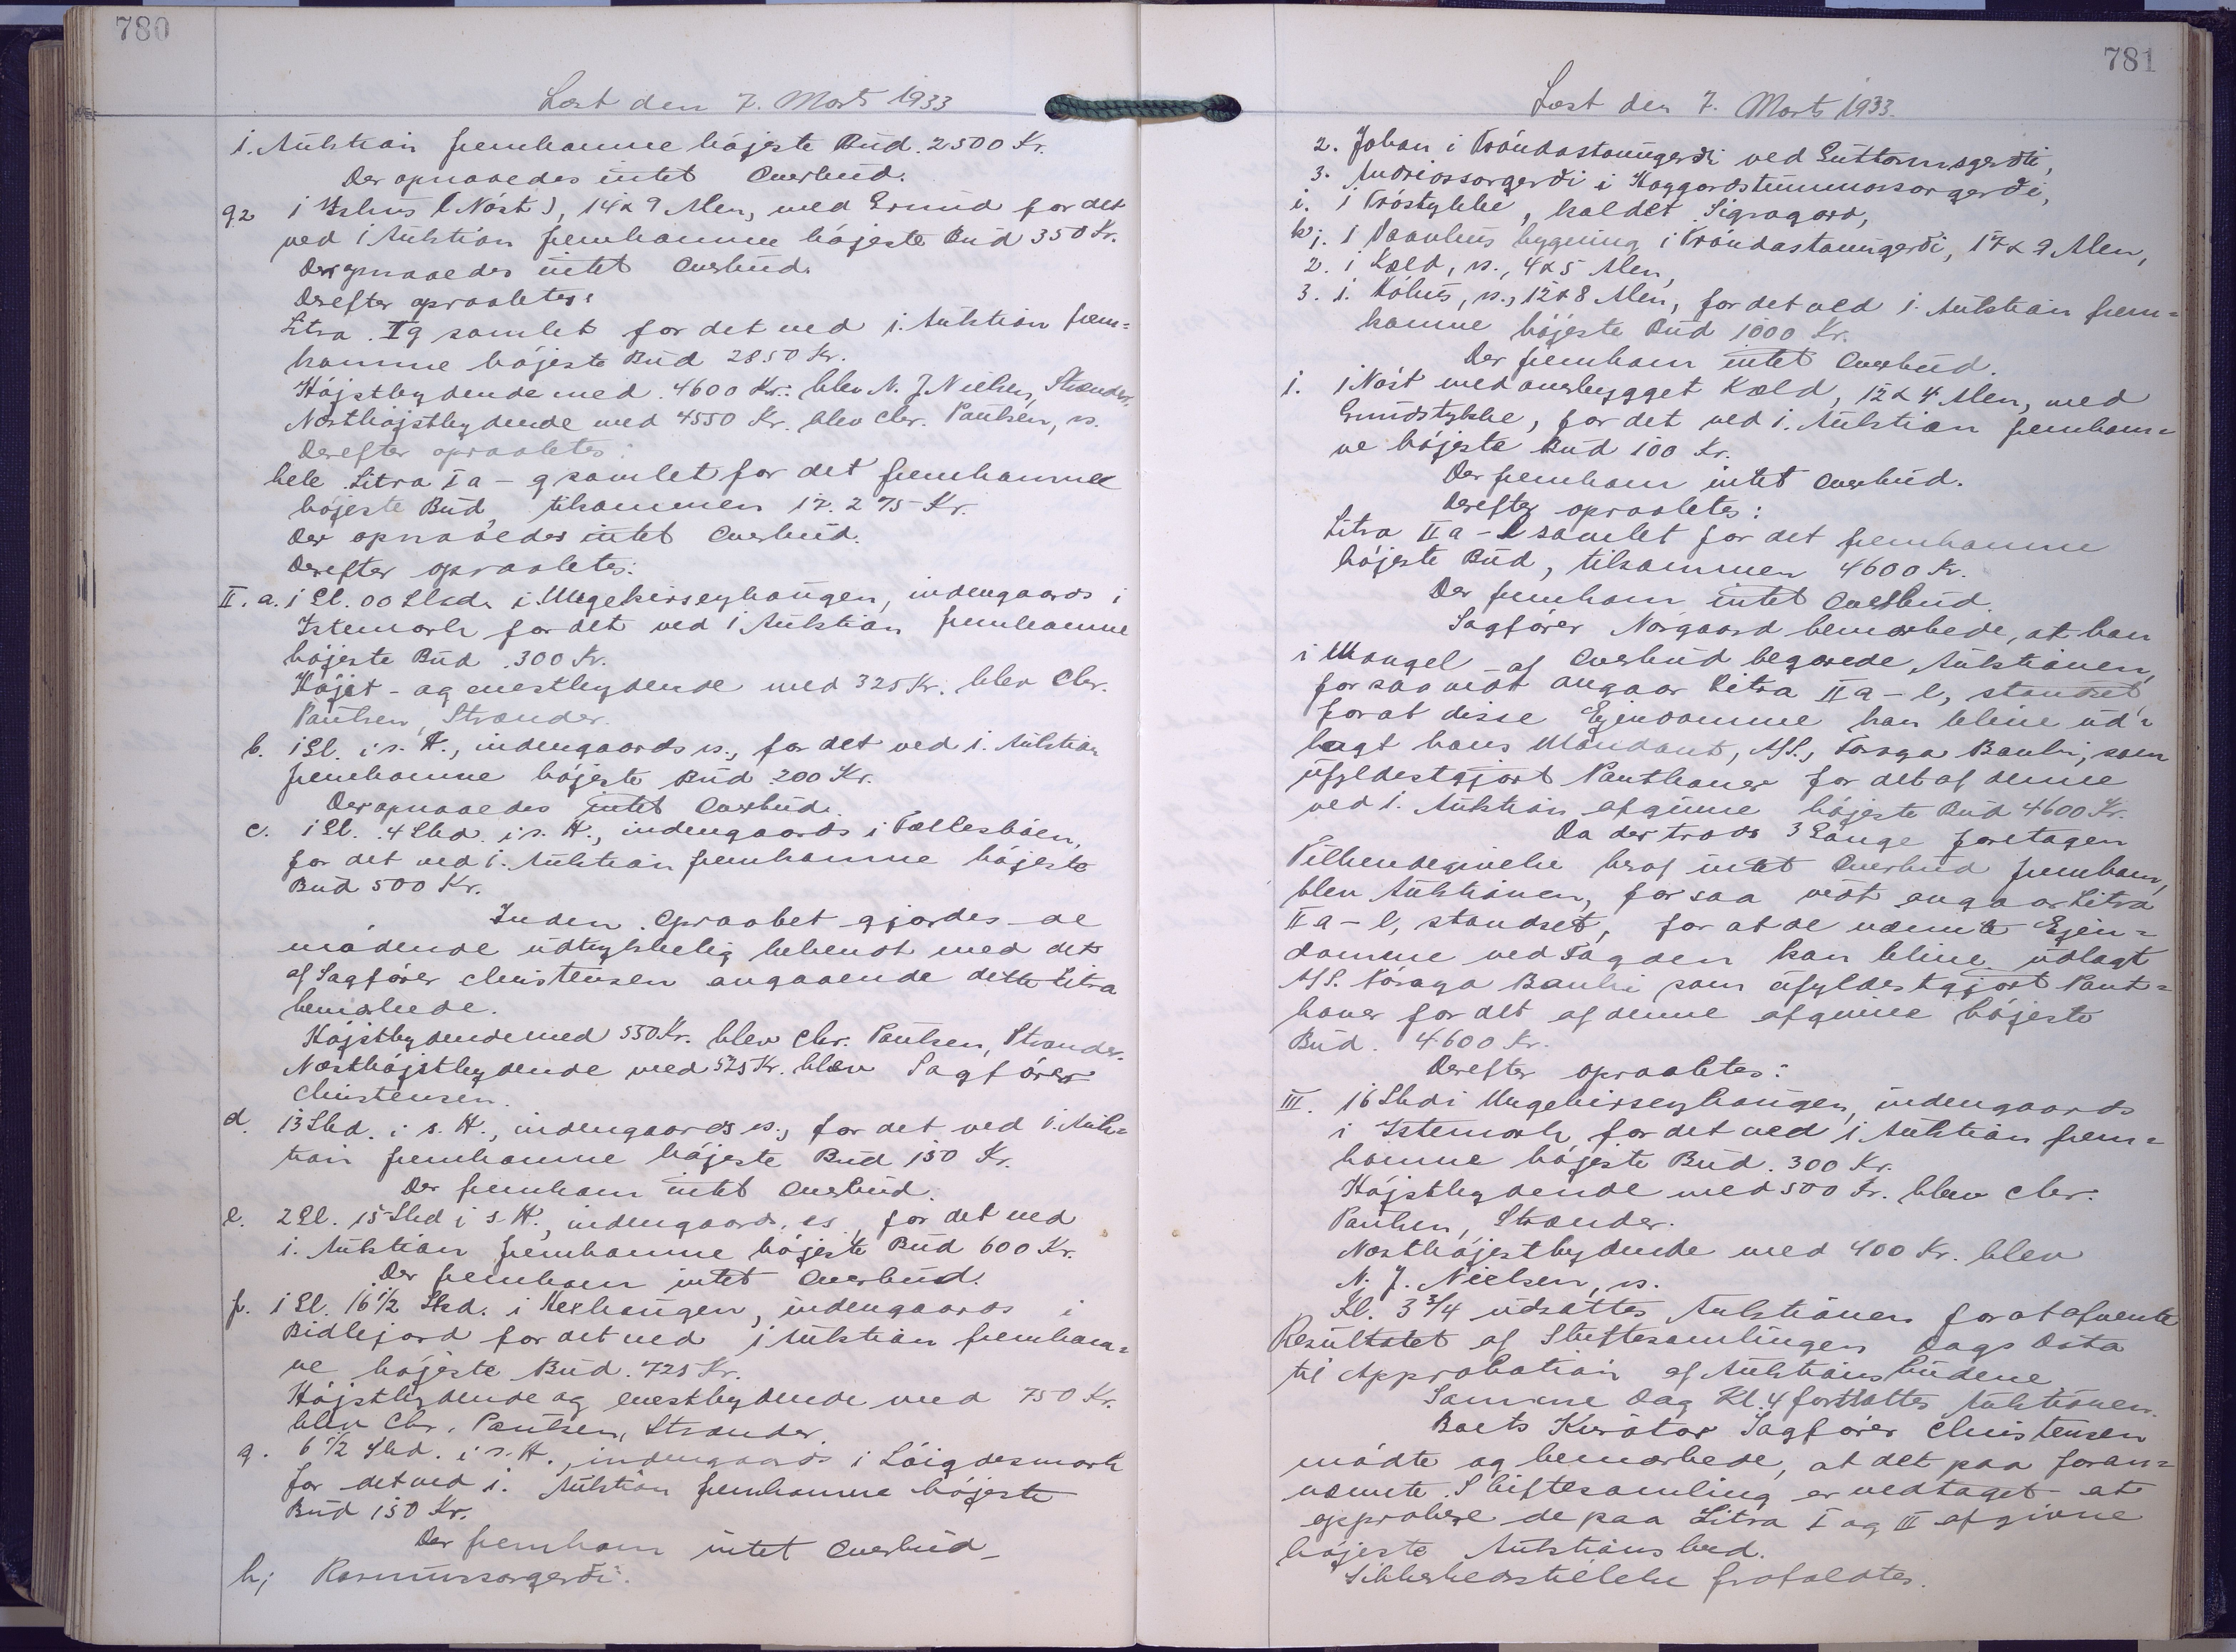 780
Læst den 7. Marts 1933
1. Auktion fremkomne højeste Bud 2500 Kr.
Der opnaaedes intet Overbud.
g2 1 Ishus (Nøst), 14 x 9 Alen, med Grund for det
ved 1 Auktion fremkomne højeste Bud 350 Kr.
Der opnaaedes intet Overbud.
Derefter opraabtes:
Litra Ig samlet for det ved 1. Auktion frem=
komne højeste Bud 2850 Kr.
Højstbydende med 4600 Kr. blev N. J. Nielsen, Strænder.
Næsthøjstbydende med 4550 Kr. blev Chr. Paulsen, s.
Derefter opraabtes:
hele Litra I a - g samlet for det fremkomne
højeste Bud, tilsammen 12.275 Kr.
Der opnaaedes intet Overbud.
Derefter opraabtes:
II. a. 1 Gl. 00 Skd. i Mugekirseyhaugen, indengaards i
Istemørk for det ved 1 Auktion fremkomne
højeste Bud 300 Kr.
Højst- og enestbydende med 325 Kr. blev Chr.
Paulsen, Strænder.
b. 1 Gl. i s. H., indengaards s., for det ved 1. Auktion
fremkomne højeste Bud 200 Kr.
Der opnaaedes intet Overbud.
c. 1 Gl. 4 Skd. i s. H., indengaards i Fællesbøen,
for det ved 1. Auktion fremkomne højeste
Bud 500 Kr.
Inden Opraabet gjordes de
mødende udtrykkelig bekendt med det
af Sagfører Christensen angaaende dette Litra
bemærkede.
Højstbydende med 550 Kr. blev Chr. Paulsen, Strænder.
Næsthøjstbydende med 525 Kr. blev Sagfører
Christensen.
d. 13 Skd. i s. H., indengaards s., for det ved 1. Auk=
tion fremkomne højeste Bud 150 Kr.
Der fremkom intet Overbud.
e. 2 Gl. 15 Skd i s. H., indengaards, s., for det ved
1. Auktion fremkomne højeste Bud 600 Kr.
Der fremkom intet Overbud.
f. 1 Gl. 16 1/2 Skd. i Kexhaugen, indengaards i
Bidlejord for det ved 1 Auktion fremkom=
ne højeste Bud 725 Kr.
Højstbydende og enestbydende med 750 Kr.
blev Chr. Paulsen, Strænder.
g. 6 1/2 Skd. i s. H., indengaards i Løigdesmørk
for det ved 1. Auktion fremkomne højeste
Bud 150 Kr.
Der fremkom intet Overbud
h1 Rasmussargerði.
781
Læst den 7. Marts 1933.
2. Johan i Tróndastovugerði ved Guttormsgerði,
3. Andriassargerði i Høggardstummassargerði,
i. 1 Tróstykke, kaldet Sigragarð,
k1. 1 Vaanhus bygning i Tróndastovugerði, 17 x 9 Alen,
2. 1 Kæld, s., 4 x 5 Alen,
3. 1. Kohus, s., 12 x 8 Alen, for det ved 1. Auktion frem=
komne højeste Bud 1000 Kr.
Der fremkom intet Overbud.
l. 1 Nøst med overbygget Kæld, 12 x 4 Alen, med
Grundstykke, for det ved 1. Auktion fremkom=
ne højeste Bud 100 Kr.
Der fremkom intet Overbud.
Derefter opraabtes:
Litra II a - l samlet for det fremkomne
højeste Bud, tilsammen 4600 Kr.
Der fremkom intet Overbud.
Sagfører Nørgaard bemærkede, at han
i Mangel af Overbud begærede Auktionen,
for saa vidt angaar Litra II a - l, standset
for at disse Ejendomme kan blive ud=
lagt hans Mandant, A/S. Føroya Banki, som
ufyldestgjort Panthaver for det af denne
ved 1. Auktion afgivne højeste Bud 4600 Kr.
Da der trods 3 Gange foretagen
Tilkendegivelse heraf intet Overbud fremkom,
blev Auktionen, for saa vidt angaar Litra
II a - l, standset, for at de nævnte Ejen=
domme ved Fogden kan blive udlagt
A/S. Føroya Banki som ufyldestgjort Pant=
haver for det af denne afgivne højeste
Bud 4600 Kr.
Derefter opraabtes:
III. 16 Skd i Mugekirseyhaugen, indengaards
i Istemørk for det ved 1 Auktion frem=
komne højeste Bud. 300 Kr.
Højstbydende med 500 Kr. blev Chr.
Paulsen, Strænder.
Næsthøjestbydende med 400 Kr. blev
N. J. Nielsen, s.
Kl. 3 3/4 udsattes Auktionen for at afvente
Resultatet af Skiftesamlingen Dags Dato
til Approbation af Auktionsbudene
Samme Dag Kl. 4 fortsattes Auktionen.
Boets Kurator Sagfører Christensen
mødte og bemærkede, at det paa foran=
nævnte Skiftesamling er vedtaget at
approbere de paa Litra I og III afgivne
højeste Auktionsbud.
Sikkerhedsstillelse frafaldtes.